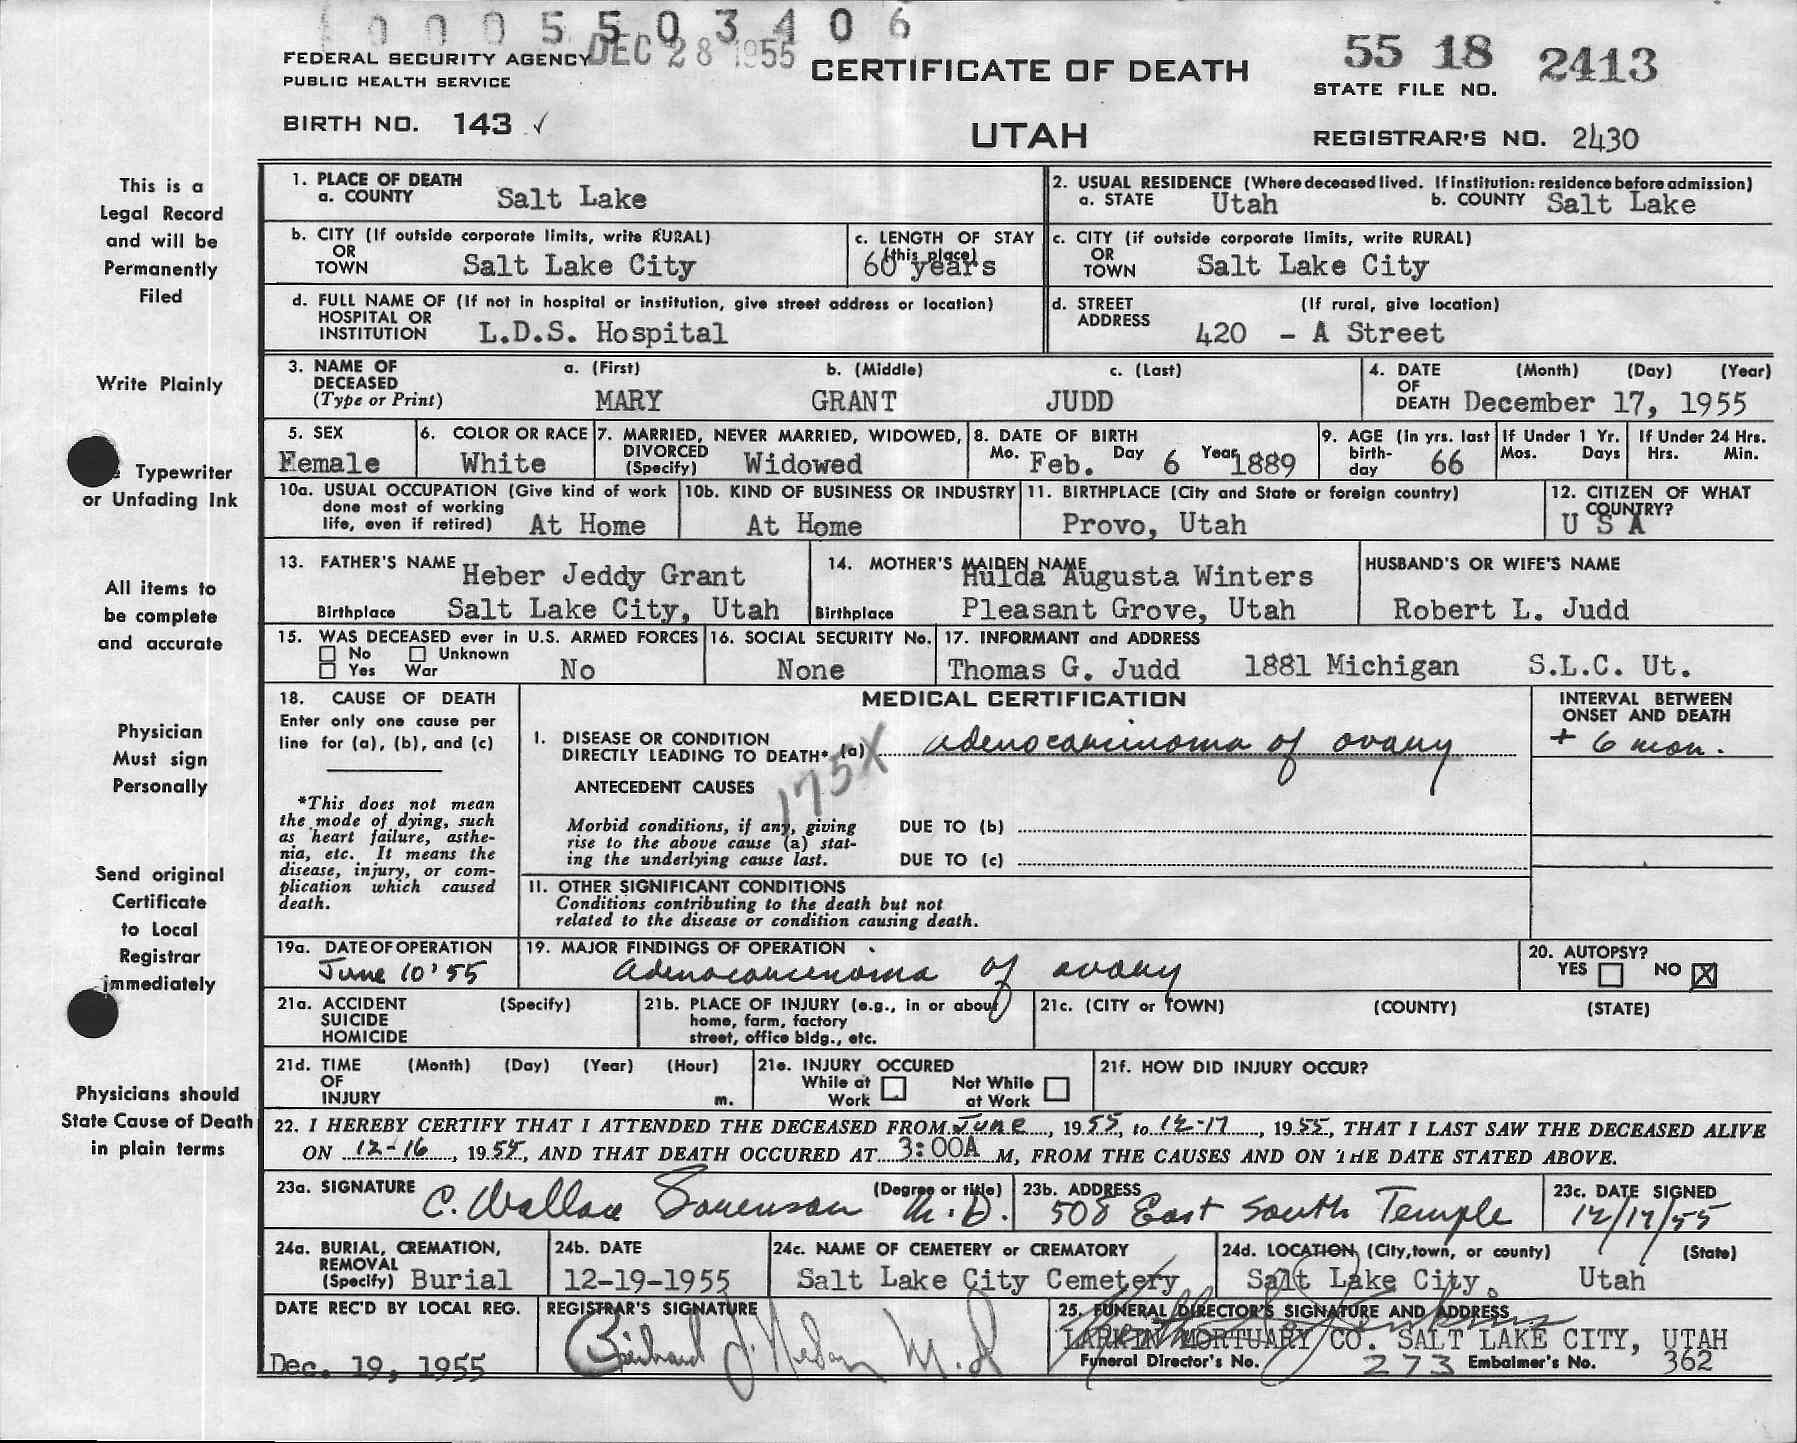 1 0 0 0 5 5 0 3 4 0 6
FEDERAL SECURITY AGENCY DEC 28 1955
PUBLIC HEALTH SERVICE
CERTIFICATE OF DEATH
55 18 2413
STATE FILE NO.
BIRTH NO. 143 ✓
UTAH
REGISTRAR'S NO. 2430
This is a
Legal Record
and will be
Permanently
Filed
Write Plainly
Typewriter
or Unfading Ink
All items to
be complete
and accurate
Physician
Must sign
Personally
Send original
Certificate
to Local
Registrar
immediately
Physicians should
State Cause of Death
in plain terms
1. PLACE OF DEATH
a. COUNTY Salt Lake
2. USUAL RESIDENCE (Where deceased lived. If institution: residence before admission)
a. STATE Utah b. COUNTY Salt Lake
b. CITY (If outside corporate limits, write RURAL)
OR
TOWN Salt Lake City
c. LENGTH OF STAY
(this place)
60 years
c. CITY (if outside corporate limits, write RURAL)
OR
TOWN Salt Lake City
d. FULL NAME OF (If not in hospital or institution, give street address or location)
HOSPITAL OR
INSTITUTION L.D.S. Hospital
d. STREET (If rural, give location)
ADDRESS
420 - A Street
3. NAME OF a. (First) b. (Middle) c. (Last)
DECEASED
(Type or Print) MARY GRANT JUDD
4. DATE (Month) (Day) (Year)
OF
DEATH December 17, 1955
5. SEX
Female
6. COLOR OR RACE
White
7. MARRIED, NEVER MARRIED, WIDOWED,
DIVORCED
(Specify) Widowed
8. DATE OF BIRTH
Mo. Feb. Day 6 Year 1889
9. AGE (In yrs. last
birth-
day 66
If Under 1 Yr.
Mos. Days
If Under 24 Hrs.
Hrs. Min.
10a. USUAL OCCUPATION (Give kind of work
done most of working
life, even if retired) At Home
10b. KIND OF BUSINESS OR INDUSTRY
At Home
11. BIRTHPLACE (City and State or foreign country)
Provo, Utah
12. CITIZEN OF WHAT
COUNTRY?
U S A
13. FATHER'S NAME Heber Jeddy Grant
Birthplace Salt Lake City, Utah
14. MOTHER'S MAIDEN NAME
Hulda Augusta Winters
Birthplace Pleasant Grove, Utah
HUSBAND'S OR WIFE'S NAME
Robert L. Judd
15. WAS DECEASED ever in U.S. ARMED FORCES
No Unknown
Yes War No
16. SOCIAL SECURITY No.
None
17. INFORMANT and ADDRESS
Thomas G. Judd 1881 Michigan S.L.C. Ut.
18. CAUSE OF DEATH
Enter only one cause per
line for (a), (b), and (c)
*This does not mean
the mode of dying, such
as heart failure, asthe-
nia, etc. It means the
disease, injury, or com-
plication which caused
death.
MEDICAL CERTIFICATION
INTERVAL BETWEEN
ONSET AND DEATH
I. DISEASE OR CONDITION
DIRECTLY LEADING TO DEATH* (a) adenocarcinoma of ovary
± 6 mon.
175X
ANTECEDENT CAUSES
Morbid conditions, if any, giving
rise to the above cause (a) stat-
ing the underlying cause last.
DUE TO (b)
DUE TO (c)
II. OTHER SIGNIFICANT CONDITIONS
Conditions contributing to the death but not
related to the disease or condition causing death.
19a. DATE OF OPERATION
June 10 '55
19. MAJOR FINDINGS OF OPERATION
adenocarcinoma of ovary
20. AUTOPSY?
YES NO X
21a. ACCIDENT (Specify)
SUICIDE
HOMICIDE
21b. PLACE OF INJURY (e.g., in or about
home, farm, factory
street, office bldg., etc.
21c. (CITY or TOWN) (COUNTY) (STATE)
21d. TIME (Month) (Day) (Year) (Hour)
OF
INJURY m.
21e. INJURY OCCURED
While at Not While
Work at Work
21f. HOW DID INJURY OCCUR?
22. I HEREBY CERTIFY THAT I ATTENDED THE DECEASED FROM June, 1955, to 12-17, 1955, THAT I LAST SAW THE DECEASED ALIVE
ON 12-16, 1955, AND THAT DEATH OCCURED AT 3:00A M, FROM THE CAUSES AND ON THE DATE STATED ABOVE.
23a. SIGNATURE C. Wallace Sorenson (Degree or title) M.D.
23b. ADDRESS
508 East South Temple
23c. DATE SIGNED
12/17/55
24a. BURIAL, CREMATION,
REMOVAL
(Specify) Burial
24b. DATE
12-19-1955
24c. NAME OF CEMETERY or CREMATORY
Salt Lake City Cemetery
24d. LOCATION (City, town, or county) (State)
Salt Lake City, Utah
DATE REC'D BY LOCAL REG.
Dec. 19, 1955
REGISTRAR'S SIGNATURE
M.D
25. FUNERAL DIRECTOR'S SIGNATURE AND ADDRESS
LARKIN MORTUARY CO. SALT LAKE CITY, UTAH
Funeral Director's No. 273 Embalmer's No. 362